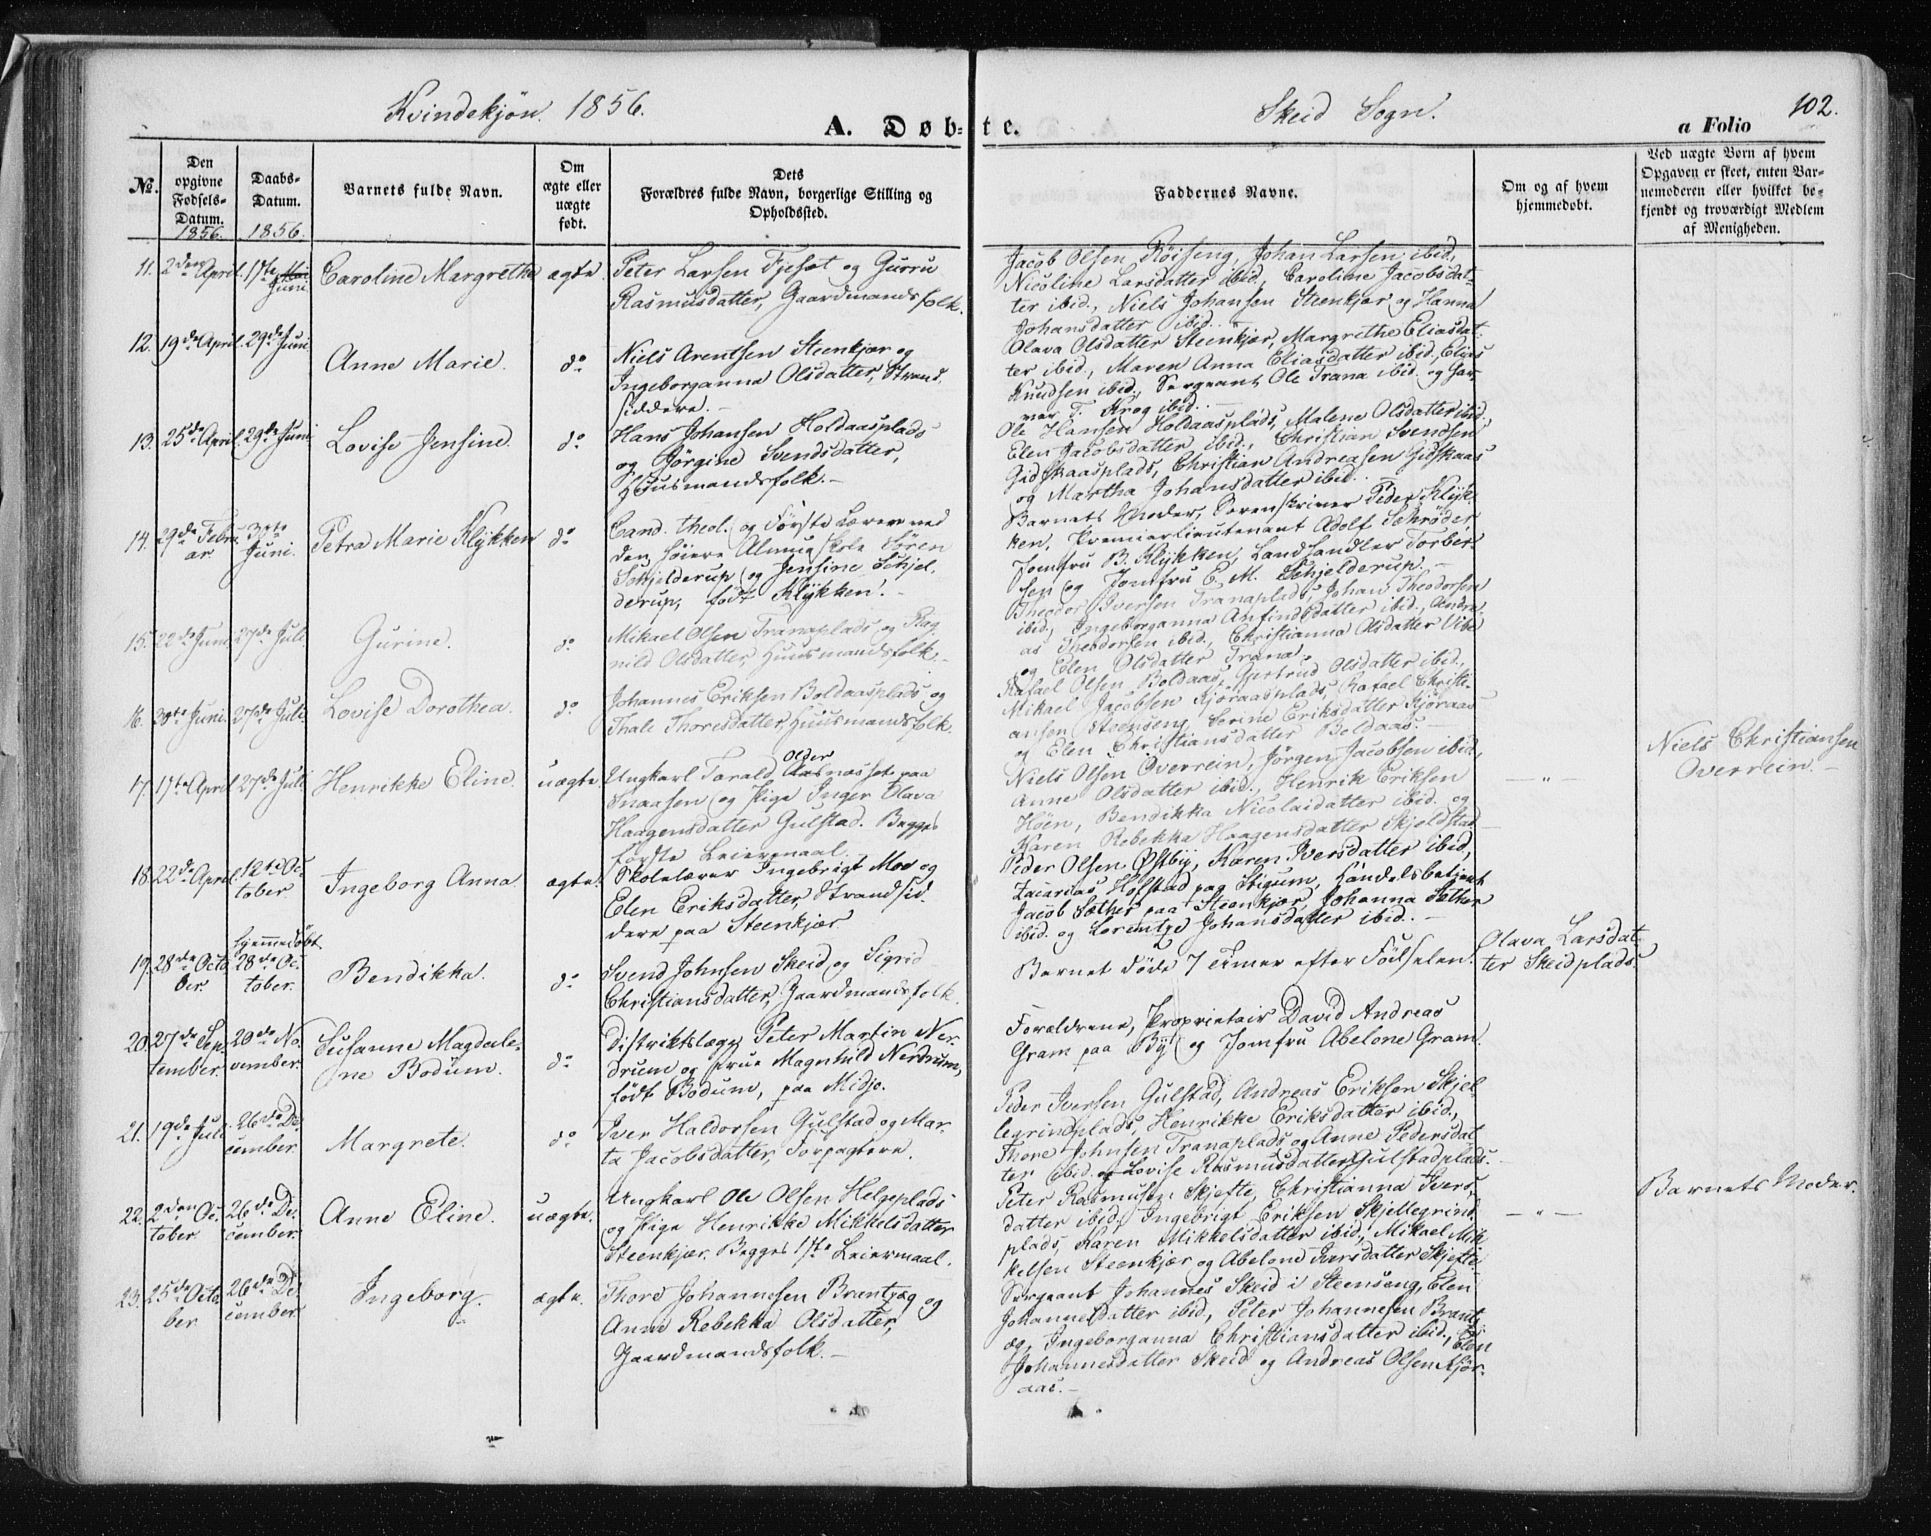 Kvindekjøn. 1856.
Skeid Sogn.
102.
A. Døb-te.
a Folio
№.
Den opgivne Fødsels-Datum. 1856.
Daabs-Datum. 1856.
Barnets fulde Navn.
Om ægte eller uægte født.
Dets Forældres fulde Navn, borgerlige Stilling og Opholdssted.
Faddernes Navne.
Om og af hvem hjemmedøbt.
Ved uægte Børn af hvem Opgaven er skeet, enten Barnemoderen eller hvilket bekjendt og troværdigt Medlem af Menigheden.
11. 2den April. 17te Juni. Caroline Margrethe ægte.
Peter Larsen Fjeset og Gurru
Rasmusdatter, Gaardmandsfolk.
Jacob Olsen Røiseng, Johan Larsen ibid,
Nicoline Larsdatter ibid, Caroline Jacobsdat-
ter ibid., Niels Johansen Steenkjær og Hanna
Johansdatter ibid. –
12. 19de April. 29de Juni. Anne Marie. do
Niels Arentsen Steenkjær og
Ingeborganna Olsdatter, Strand-
siddere. –
Olava Olsdatter Steenkjær, Margrethe Eliasdat-
ter ibid., Maren Anna Eliasdatter ibid, Elias
Knudsen ibid, Sergeant Ole Trana ibid. og Gar-
ver T. Krog ibid. –
13. 25de April. 29de Juni Lovise Jensine. do
Hans Johansen Holdaasplads
og Jørgine Svendsdatter,
Huusmandsfolk. –
Ole Hansen Holdaasplads, Malene Olsdatter ibid.
Elen Jacobsdatter ibid., Christian Svendsen
Gidskaasplads, Christian Andreasen Gidskaas
og Martha Johansdatter ibid. –
14. 29de Febru- 3die Petra Marie Klykken do
ar. Juni.
Cand. theol. og Første Lærer ved
den høiere Almueskole Søren
Schjelderup og Jensine Schjel-
derup, født Klykken. –
Barnets Moder, Sorenskriver Peder Klyk-
ken, Premierlieutenant Adolf Schrøder,
Jomfru B. Klykken, Landhandler Torber-
sen og Jomfru E. M. Schjelderup. –
15. 22de Juni. 27de Juli. Gurine. do
Mikael Olsen Tranaplads og Rag-
nild Olsdatter, Huusmandsfolk. –
Theodor Iversen Tranaplads, Johan Theodorsen
ibid., Ingeborganna Anfindsdatter ibid., Andre-
as Theodorsen ibid., Christianna Olsdatter Vibe
og Elen Olsdatter Trana.
16. 30te Juni. 27de Juli. Lovise Dorothea. do
Johannes Eriksen Boldaasplads og
Thale Thoresdatter, Huusmandsfolk.
Rafael Olsen Boldaas, Gjertrud Olsdatter ibid.,
Mikael Jacobsen Kjøraasplads, Rafael Christi-
ansen Steenseng, Serine Eriksdatter Kjøraas
og Elen Christiansdatter Boldaas. –
17. 17te April 27de Juli Henrikke Eline. uægte
Ungkarl Torald Older Aasnæsset paa
Snaasen og Pige Inger Olava
Haagensdatter Gulstad. Begges
første Leiermaal. –
Niels Olsen Overrein, Jørgen Jacobsen ibid,
Anne Olsdatter ibid., Henrik Eriksen
Høen, Bendikka Nicolaidatter ibid. og
Karen Rebekka Haagensdatter Skjeldstad
— „ —
Niels Christiansen
Overrein. –
18. 22de April. 12te Oc- Ingeborg Anna. ægte.
tober.
Skolelærer Ingebrigt Moe og
Elen Eriksdatter, Strandsid-
dere paa Steenkjær.
Peder Olsen Østby, Karen Iversdatter ibid,
Zacarias Hofstad paa Stigum, Handelsbetjent
Jacob Sæther paa Steenkjær, Johanna Sæther
ibid. og Lorentze Johansdatter ibid. –
19. 28de Octo- hjemmedøbt
ber. 28de Oc-
tober. Bendikka. do
Svend Johnsen Skeid og Sigrid
Christiansdatter, Gaardmandsfolk.
Barnet døde 7 Timer efter Fødselen.
Olava Larsdat-
ter Skeidplads.
20. 27de Sep- 20de No- Susanne Magdale-
tember. vember. ne Bodum. do
Distriktslæge Peter Martin Ner-
drum og Frue Magnhild Nerdrum,
født Bodum, paa Midjo.
Forældrene, Proprietair David Andreas
Gram paa By og Jomfru Abelone Gram.
21. 19de Juli. 26de De-
cember. Margrete. do
Iver Haldorsen Gulstad og Mar-
ta Jacobsdatter, Forpagtere.
Peder Iversen Gulstad, Andreas Eriksen Skjel-
legrindplads, Henrikke Eriksdatter ibid.,
Thore Johnsen Tranaplads og Anne Pedersdat-
ter ibid. og Lovise Rasmusdatter Gulstadplads.
22. 2den Oc- 26de De- Anne Eline. uægte.
tober cember.
Ungkarl Ole Olsen Helgeplads
og Pige Henrikke Mikkelsdatter
Steenkjær. Begges 1ste Leiermaal.
Peter Rasmusen Skjefte, Christianna Ivers-
datter ibid., Ingebrigt Eriksen Skjellegrind-
plads, Karen Mikkelsdatter ibid, Mikael Mik-
kelsen Steenkjær og Abelone Larsdatter Skjefte.
— „ —
Barnets Moder.
23. 25de Octo- 26de De- Ingeborg. ægte.
ber. cember.
Thore Johannesen Brantzæg og
Anne Rebekka Olsdatter,
Gaardmandsfolk. –
Sergeant Johannes Skeid i Steenseng, Elen
Johannesdatter ibid, Peter Johannesen Brantz-
æg, Ingeborganna Christiansdatter ibid., Elen
Johannesdatter Skeid og Andreas Olsen Kjør-
aas. –